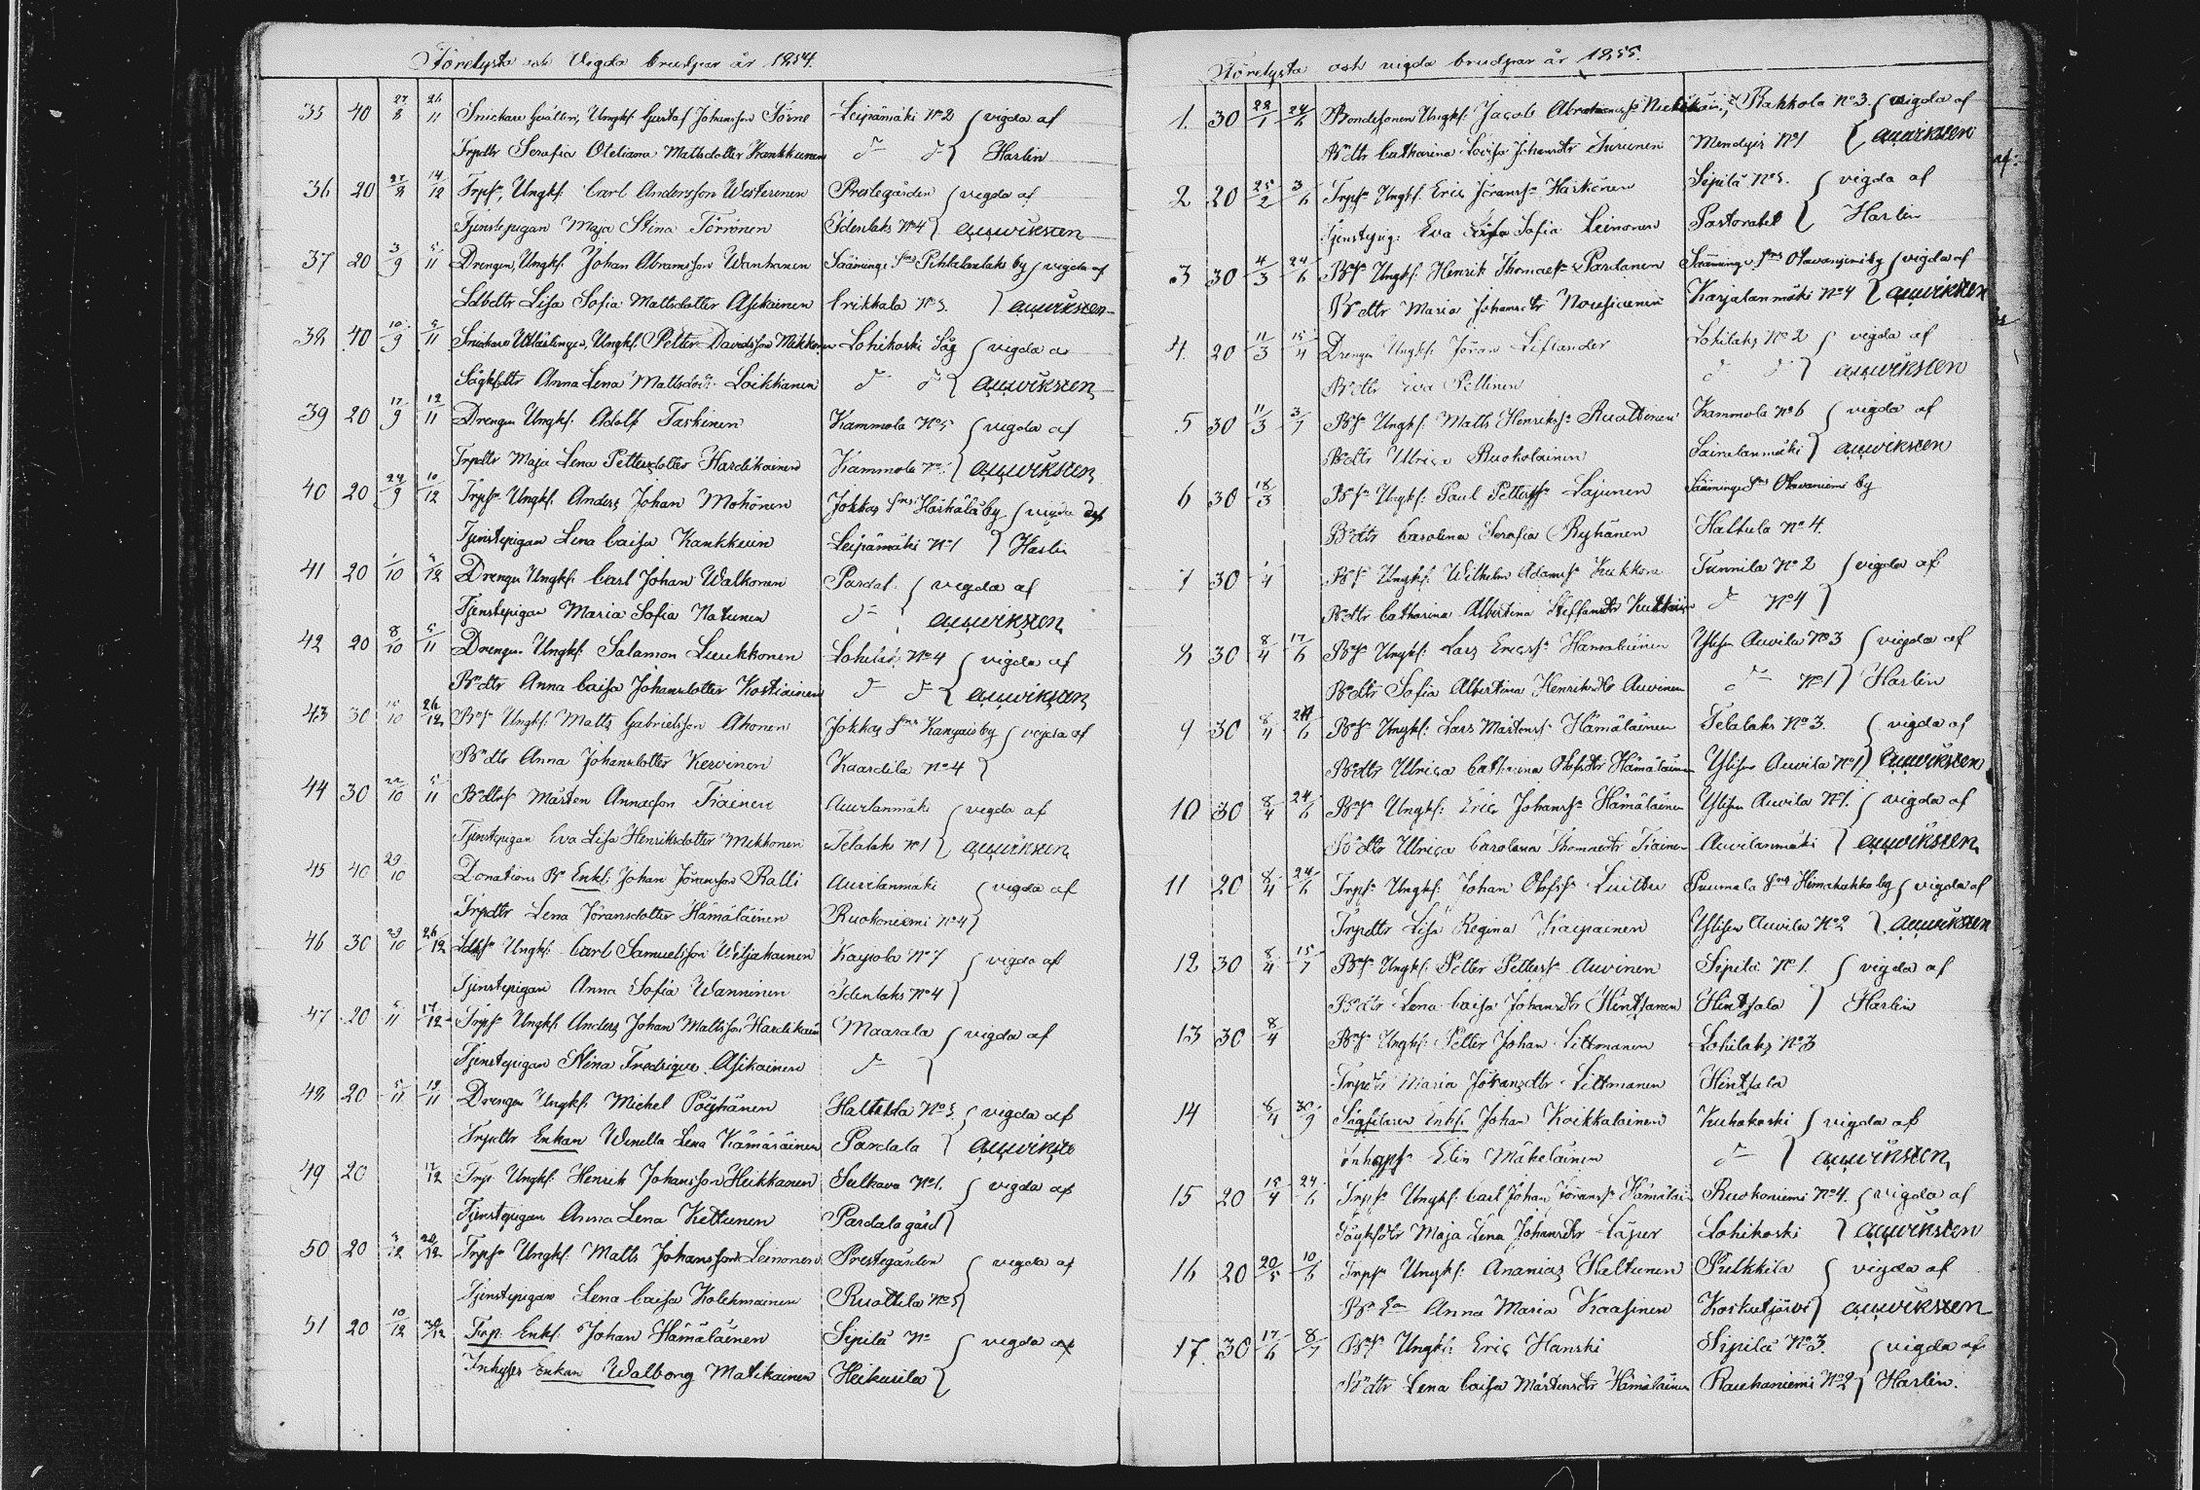 Förelysta och Vigda brudpar år 1854.
35 40 27/8 26/11 Snickare Gesällen, Ungkf. Gustaf Johansson Törne Leipämäki No 2 vigda af
Trpdtr Serafia Otteliana Mattsdotter Kankkunen d:o d:o Harlin
36 20 27/8 14/12 Trpsn, Ungkf. Carl Andersson Westerinen Prestegården vigda af
Tjenstepigan Maja Stina Törrönen Idenlaks No 4 auwiksten
37 20 3/9 5/11 Drengen, Ungkf. Johan Abramsson Wanhanen Sääminge Sns Pihlalanlaks by vigda af
Ldbdtr Lisa Sofia Mattsdotter Asikainen Erikkala No 3. auwiksten
38 40 10/9 5/11 Snickare Ungkf. Petter Davidsson Mikkonen Lohikoski Såg vigda a
Sågkfdtr Anna Lena Mattsdotr Loikkanen d:o d:o auwiksten
39 20 17/9 12/11 Drengen Ungkf. Adolf Taskinen Kammola No 5 vigda af
Trpdtr Maja Lena Pettersdotter Hardikainen Kammola No auwiksten
40 20 24/9 10/12 Trpsn Ungkf. Anders Johan Mohönen Jokkas Sns Härkälä by vigda af
Tjenstepigan Lena Caisa Kankkunen Leipämäki No 1 Harlin
41 20 1/10 5/12 Drengen Ungkf. Carl Johan Walkonen Pardal. vigda af
Tjenstepigan Maria Sofia Natunen d:o auwiksten
42 20 8/10 5/11 Drengen Ungkf. Salamon Luukkonen Lohilaks No 4 vigda af
Bndtr Anna Caisa Johansdotter Kostiainen d:o d:o auwiksten
43 30 15/10 26/12 Bnsn Ungkf. Matts Gabrielsson Ahonen Jokkas Sns Kangais by vigda af
Bndtr Anna Johansdotter Kervinen Kaartila No 4
44 30 22/10 5/11 Bdtrsn Mårten Annasson Tiainen Auvilanmäki vigda af
Tjenstepigan Eva Lisa Henriksdotter Mikkonen Telalaks No 1 auwiksten
45 40 29/10 Donations Bn Enkl. Johan Jöransson Ralli Auvilanmäki vigda af
Trpdtr Lena Jöransdotter Hämäläinen Ruokoniemi No 4
46 30 29/10 26/12 Ldbsn Ungkf. Carl Samuelsson Wiljakainen Kaipola No 7 vigda af
Tjenstepigan Anna Sofia Wanninen Idenlaks No 4
47 20 5/11 17/12 Trpsn Ungkf. Anders Johan Mattsson Hardikain Maarala vigda af
Tjenstepigan Stina Fredrique Asikainen d:o
48 20 5/11 19/11 Drengen Ungkf. Michel Pöyhänen Haltula No 5 vigda af
Trpdtr Enkan Wendla Lena Kämäräinen Pardala auwikste
49 20 17/12 Trp Ungkf. Henrik Johansson Heikkanen Sulkava No 1. vigda af
Tjenstepigan Anna Lena Kettunen Pardala gård
50 20 3/12 26/12 Trpsn Ungkf. Matts Johansson Leinonen Prestegården vigda af
Tjenstepigan Lena Caisa Kolehmainen Ruottila No 5
51 20 10/12 30/12 Trp. Enkl. Johan Hämäläinen Sipilä No vigda af
Inhyses Enkan Walborg Matikainen Heikurila
Förelysta och vigda brudpar år 1855.
1. 30 22/1 24/6 Bondesonen Ungkf. Jacob Abrahamsson Rakkola No 3. vigda af
Bndtr Catharina Lovisa Johansdtr Turunen No 1 auwiksten
2 20 25/2 3/6 Trpsn Ungkf. Eric Jöranss: Härkönen Sipilä No 5. vigda af
Tjenstepig: Eva Sofia Leinonen Pastoratet Harlin
3 30 4/3 24/6 Bnsn Ungkf. Henrik Thomaesn Pardanen Sääminge Sns Otavaniemi by vigda af
Bndtr Maria Johansdtr Nousiainen Karjalanmäki No 4 auwiksten
4. 20 11/3 15/4 Drengen Ungkf. Jöran Liflander Lohilaks No 2 vigda af
Bndtr Eva Peltinen d:o d:o auwiksten
5 30 11/3 3/7 Bnsn Ungkf. Matts Henrikss: Ruottinen Kammola No 6 vigda af
Bndtr Ulrica Ruokolainen Sairalanmäki auwiksten
6 30 18/3 Bnsn Ungkf. Paul Petterssn Lajunen Sääminge Sns Otavaniemi by
Bndtr Carolina Serafia Ryhänen Haltula No 4.
7 30 1/4 Bnsn Ungkf. Wilhelm Adamsn Kukkonen Tunnila No 2 vigda af
Bndtr Catharina Albertina Steffansdtr d:o No 4
8 30 8/4 17/6 Bnsn Ungkf. Lars Ericssn Hämäläinen Ylisen Auvila No 3 vigda af
Bndtr Sofia Albertina Henriksdtr Auvinen d:o No 1 Harlin
9 30 8/4 24/6 Bnsn Ungkf. Lars Mårtenss: Hämäläinen Telalaks No 3. vigda af
Bndtr Ulrica Catharina Olofsdtr Hämäläinen Ylisen Auvila No 1 auwiksten
10 30 8/4 24/6 Bnsn Ungkf. Eric Johanssn Hämäläinen Ylisen Auvila No 1. vigda af
Bndtr Ulrica Carolina Thomaedtr Tiainen Auvilanmäki auwiksten
11 20 8/4 24/6 Trpsn Ungkf. Johan Olofssn Luittu Puumala Sns Himahakko by vigda af
Trpdtr Lisa Regina Kaipainen Ylisen Auvila No 2 auwiksten
12 30 8/4 15/7 Bnsn Ungkf. Petter Petterss: Auvinen Sipilä No 1. vigda af
Bndtr Lena Caisa Johansdtr Hintsanen Hintsala Harlin
13 30 8/4 Bnsn Ungkf. Petter Johan Littmanen Lohilaks No 3
Trpdtr Maria Jöransdtr Littmanen Hintsala
14 8/4 30/9 Sågfilaren Enkl. Johan Koikkalainen Kuhakoski vigda af
Inhyses Elin Mäkeläinen d:o auwiksten
15 20 15/4 24/6 Trpsn Ungkf. Carl Johan Jöranss: Hämäläi Ruokoniemi No 4. vigda af
Sågkfdtr Maja Lena Johansdtr Lohikoski auwiksten
16 20 20/5 10/6 Trpsn Ungkf. Ananias Heltunen Pulkkila vigda af
Bn Anna Maria Kaasinen Koskutjärvi auwiksten
17. 30 17/6 8/7 Bnsn Ungkf. Eric Hanski Sipilä No 3. vigda af
Bndtr Lena Caisa Mårtensdtr Hämäläinen Rauhaniemi No 2 Harlin.